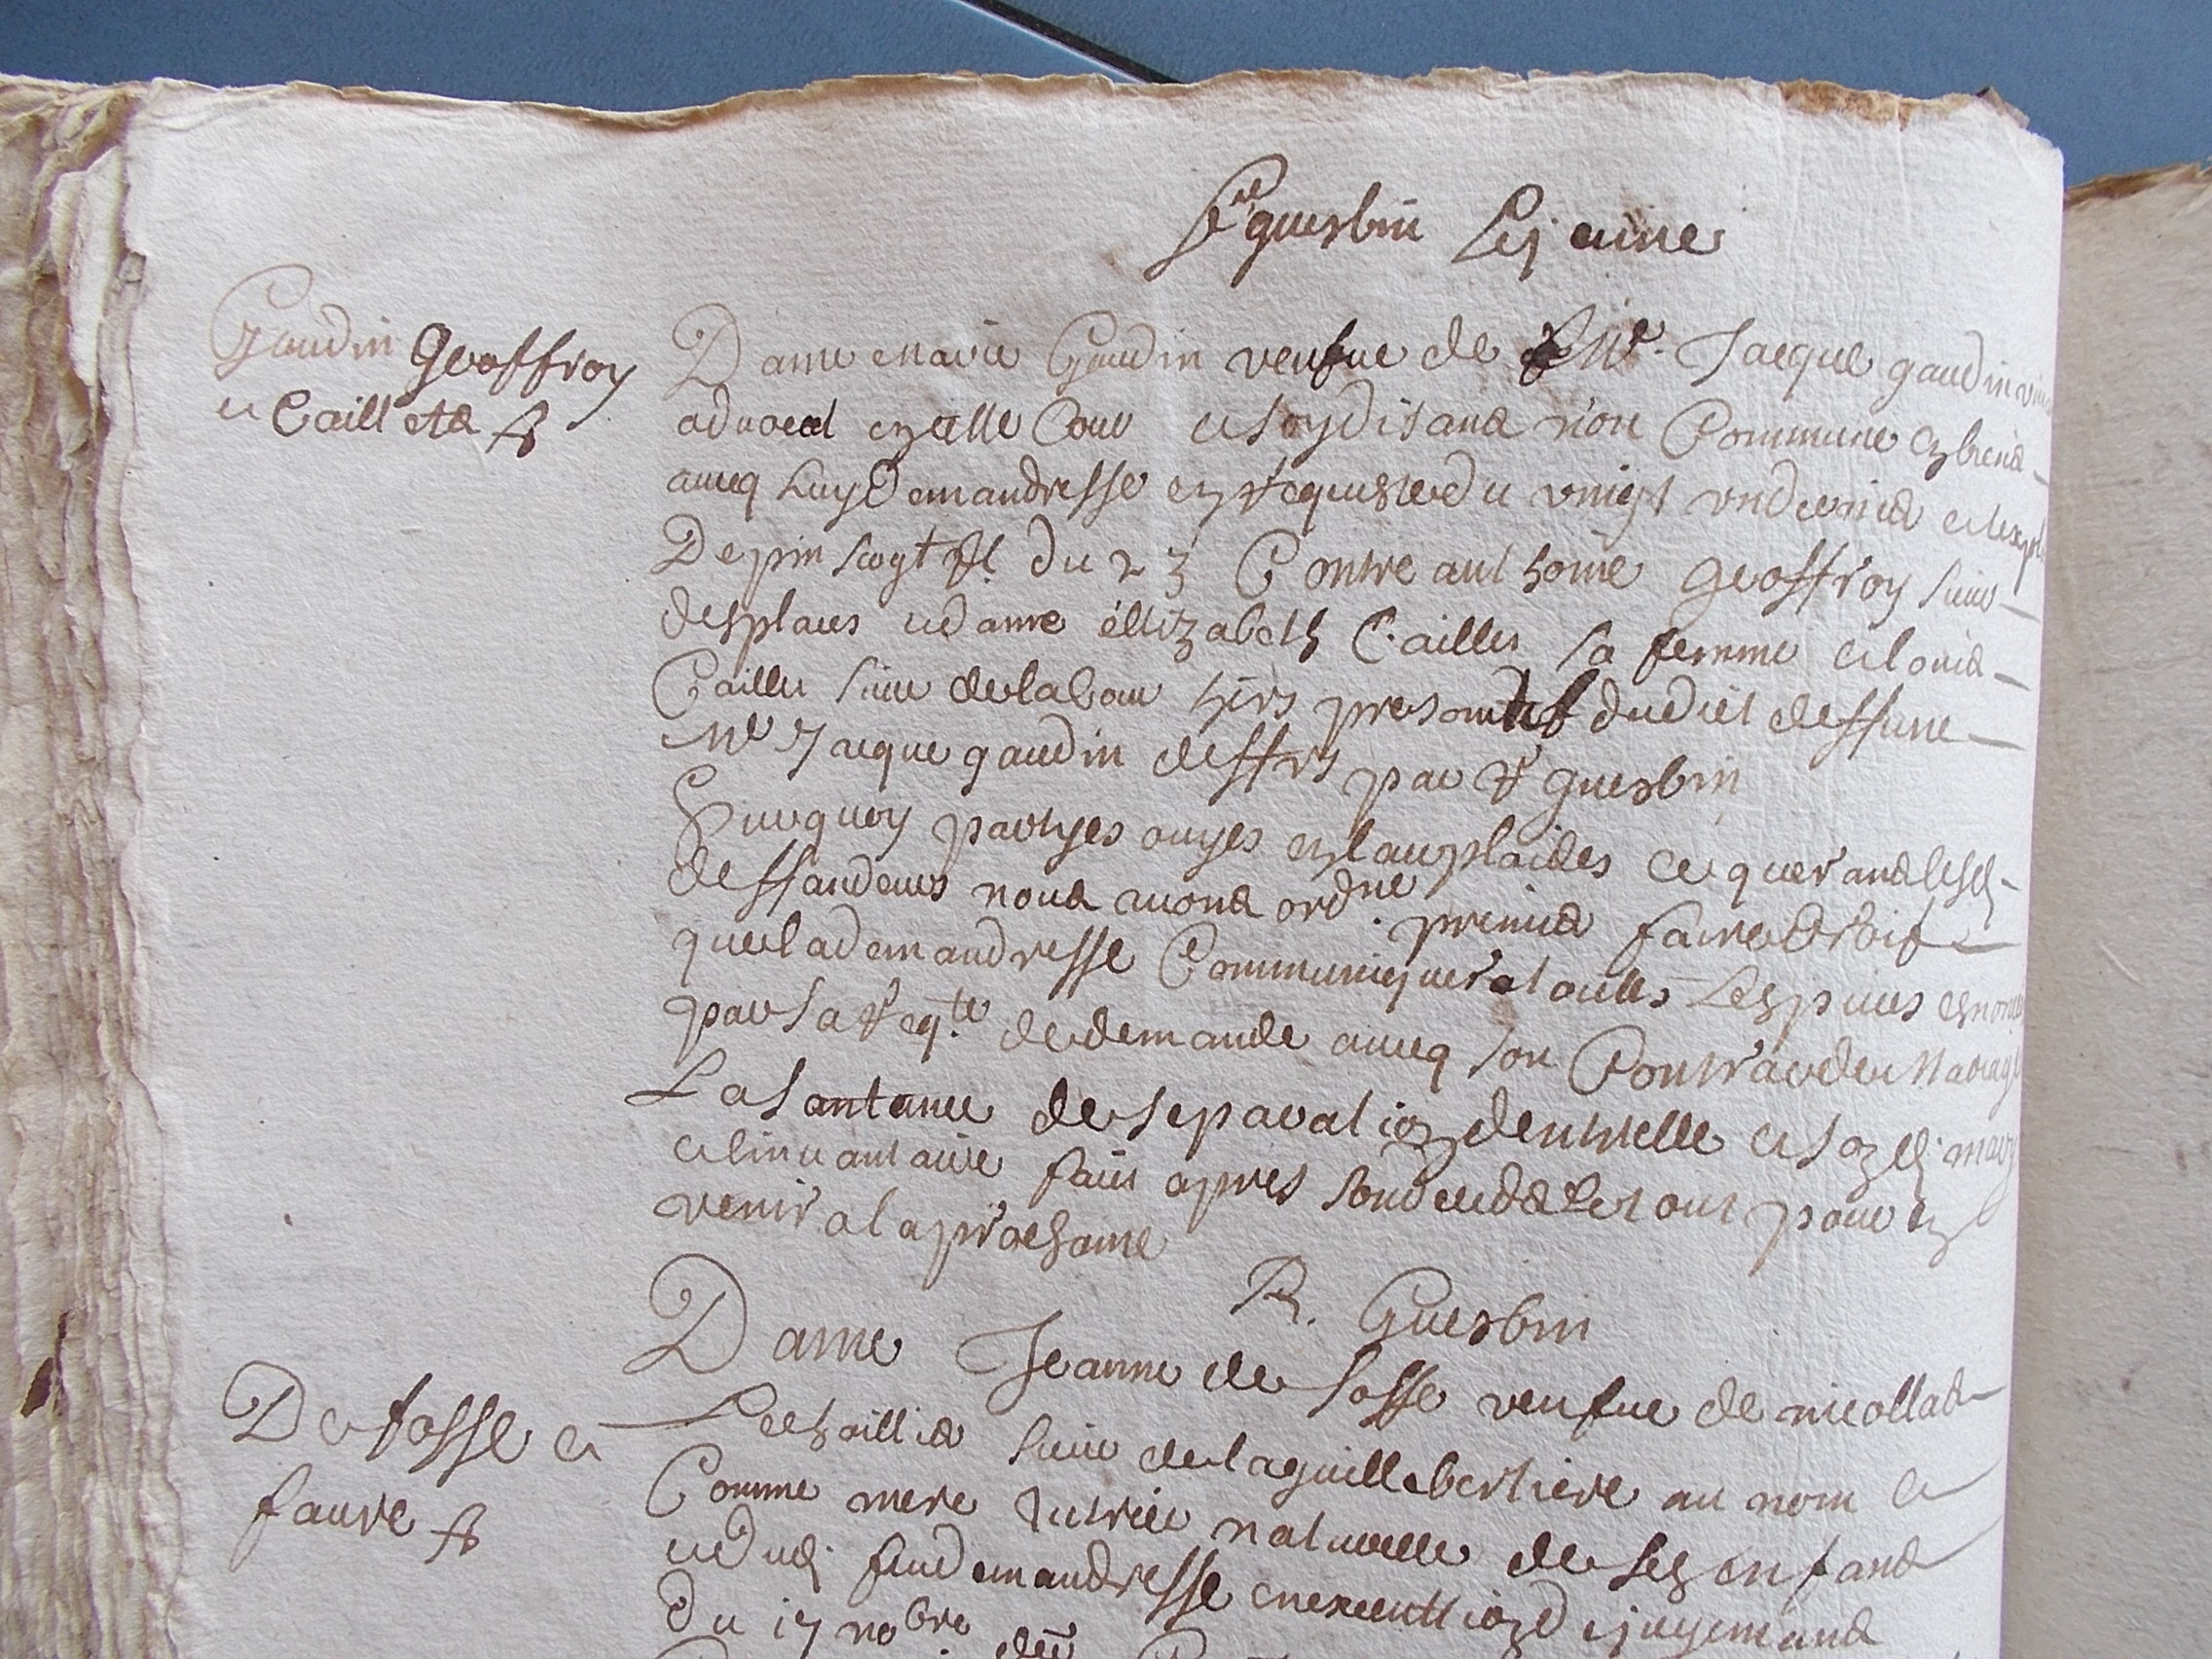 guesbin Lejeune
Gaudin Geoffroy
et Cailletz
Dame marie Gaudin veufue de Me. Jacque gaudin
aduocat en cette Cour et soy disant non Commune en biens
aueq Luy Demandresse en requeste du vingt un
De pinsregt du 23 Contre anthoine Geoffroy sieur
desplaces et dame ellizabeth Cailler sa femme et louis
Cailler sieur de laboue hers presomtif dudict deffunc
Me Jacque gaudin deffrs par guesbin
Surquoy partyes ouyes en leur plaides ce querans lesd
deffandeurs nous auons ordne. premier faire droit
que la demandresse Communiquera toultes Les pieces
par sa reqte de demande aueq son Contrac de Mariage
La santance de separation dentrelle et son d. mary
et linuantaire faict apres son decedz Le tout pour en
venir a la prochaine
R. Guesbin
De fosse et
faure
Dame Jeanne de fosse veufue de nicollas
Lechaillier sieur de la guillebertiere au nom et
Comme mere tutrice naturelle de ses enfans
et dud. feu demandresse en execution de jugemans
du 17 nobre der